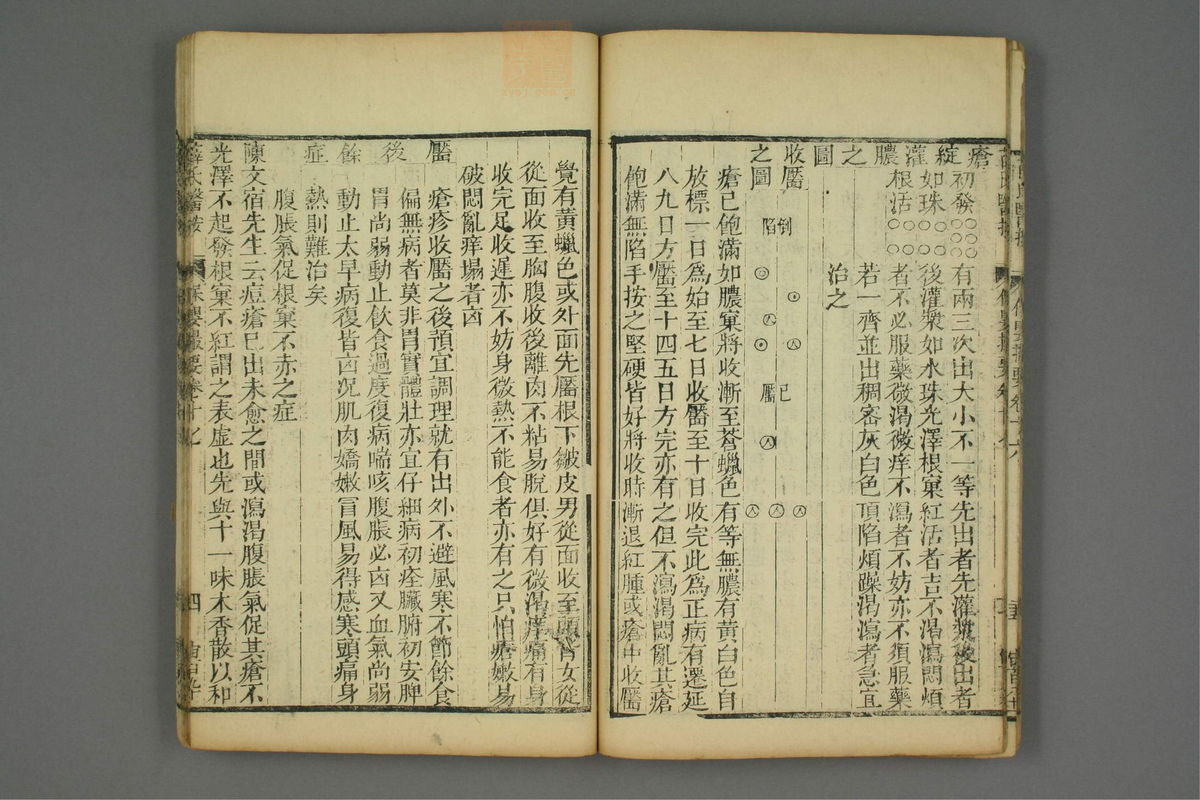 瘡初發○○○有兩三次出大小不一等先出者先灌漿後出者
綻如珠○○○後灌漿如水珠光澤根窠紅活者吉不渴瀉悶煩
灌根活○○者不必服藥微渴微痒不瀉者不妨亦不須服藥
膿若一齊並出稠密灰白色頂陷煩躁渴瀉者急宜
之治之
圖
收靨倒陷
之圖已靨
瘡已飽滿如膿窠將收漸至蒼蠟色有等無膿有黃白色自
放標一日爲始至七日收靨至十日收完此爲正病有遷延
八九日方靨至十四五日方完亦有之但不瀉渴悶亂其瘡
飽滿無陷手按之堅硬皆好將收時漸退紅腫或瘡中收靨
覺有黃蠟色或外面先靨根下皺皮男從面收至頭背女從
從面收至胸腹收後離肉不粘易脫俱好有微渴痒痛有身
收完足收遲亦不妨身微熱不能食者亦有之只怕瘡嫩易
破悶亂痒塌者凶
靨瘡疹收靨之後須宜調理就有出外不避風寒不節餘食
偏無病者莫非胃實體壯亦宜仔細病初痊臟腑初安脾
後胃尚弱動止飲食過度復病喘咳腹脹必凶又血氣尚弱
餘動止太早病復皆凶況肌肉嬌嫩冒風易得感寒頭痛身
症熱則難治矣
腹脹氣促根窠不赤之症
陳文宿先生云痘瘡已出未愈之間或瀉渴腹脹氣促其瘡不
光澤不起發根窠不紅謂之表虛也先與十一味木香散以和
薛氏醫按 保嬰撮要卷十 四